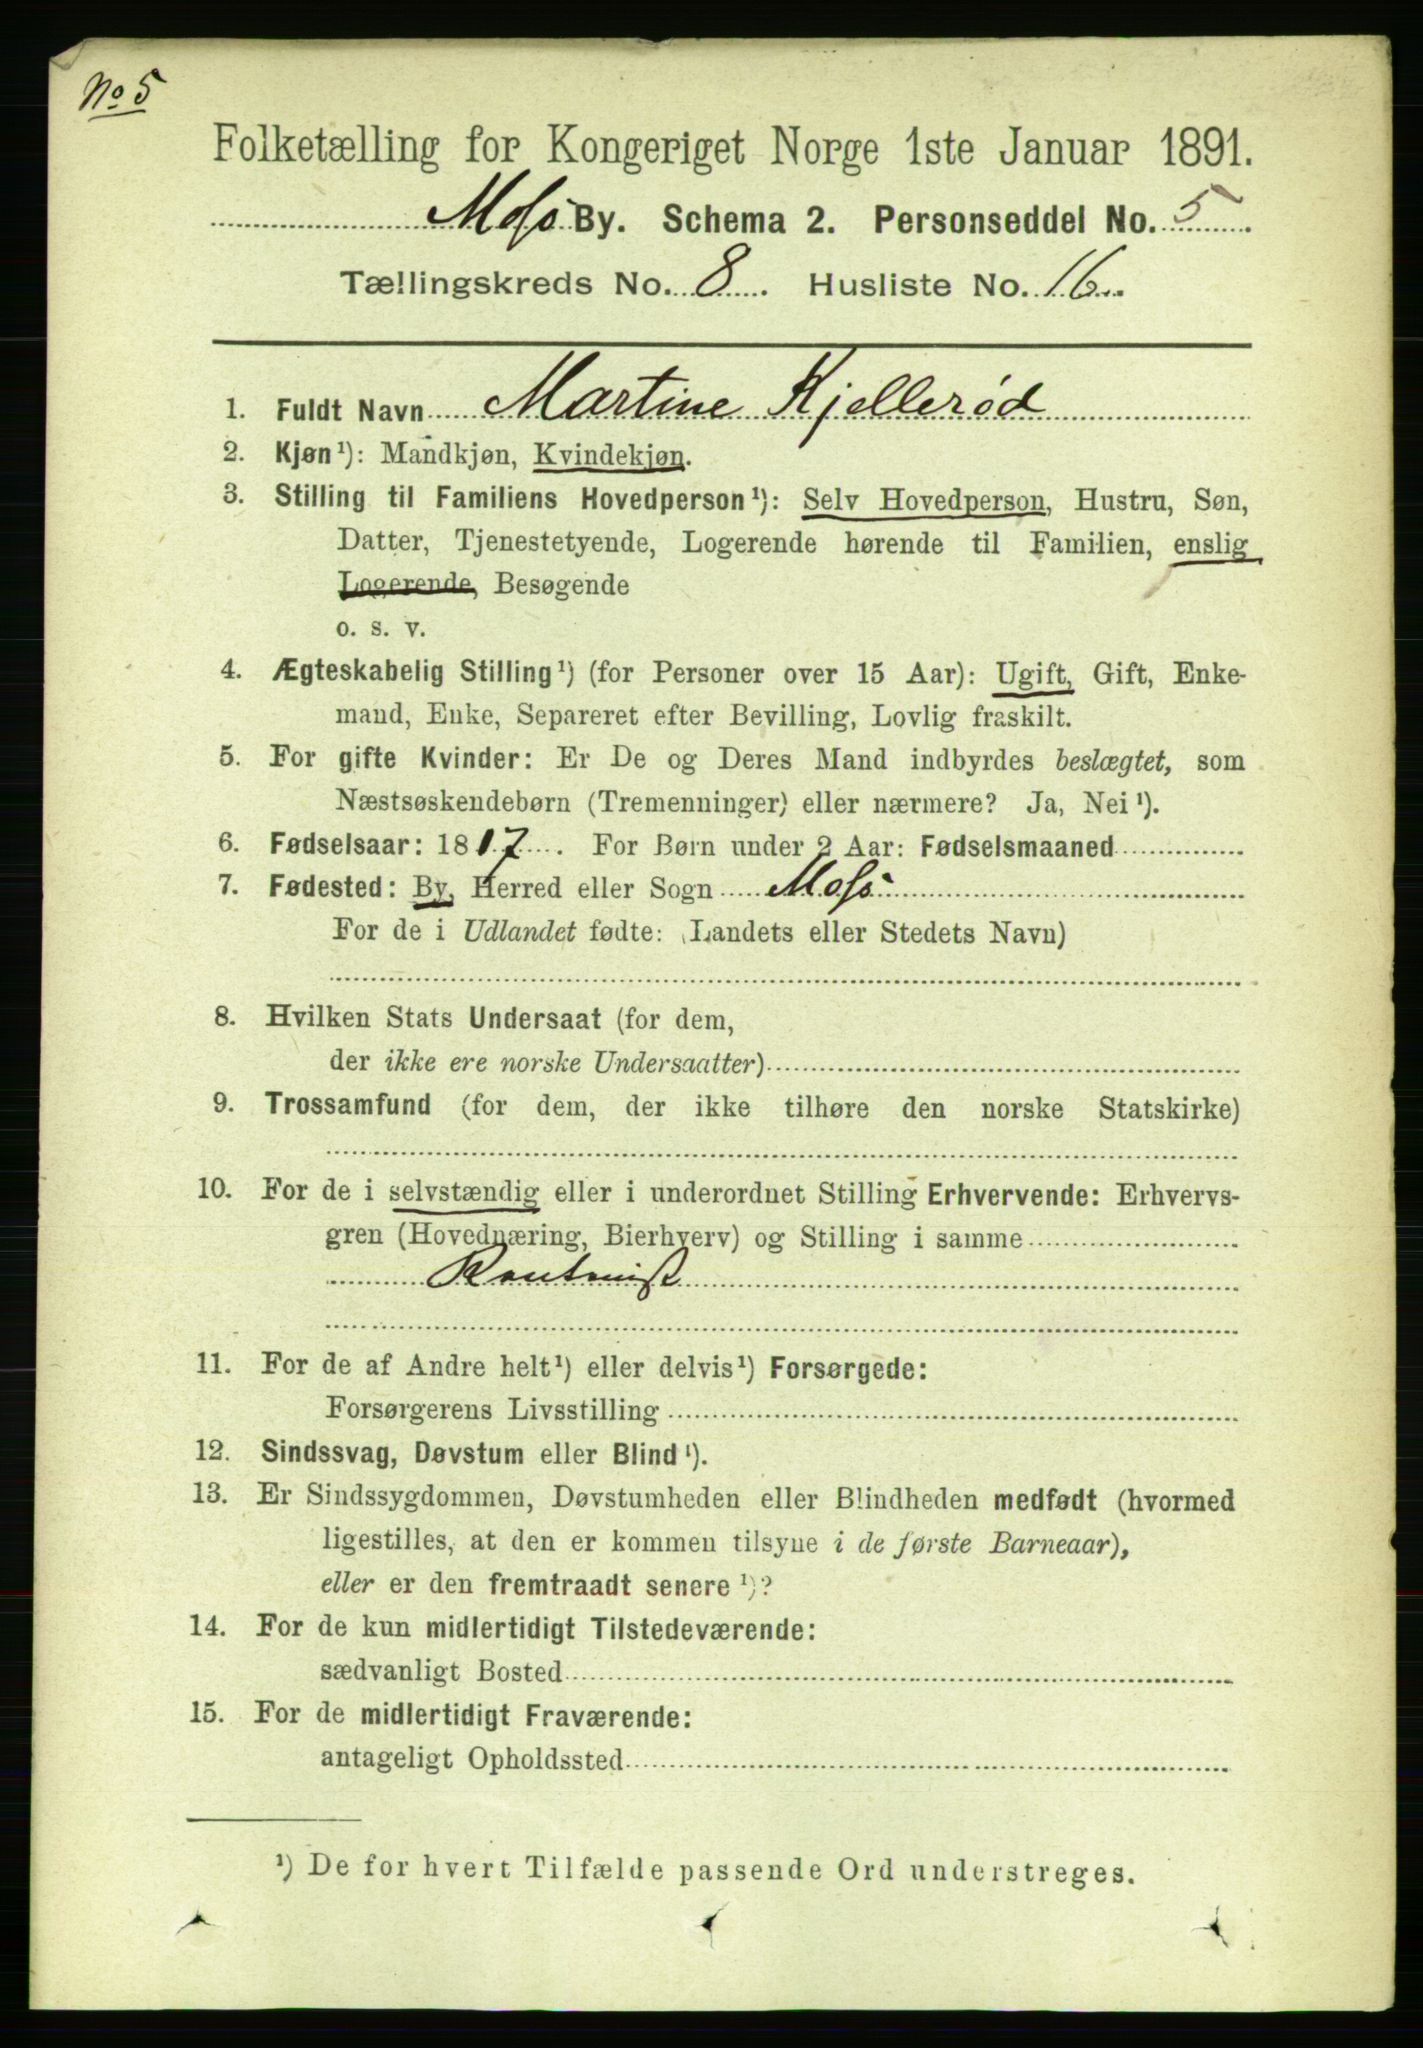 No 5
Folketælling for Kongeriget Norge 1ste Januar 1891.
Moss By. Schema 2. Personseddel No. 5
Tællingskreds No. 8. Husliste No. 16
1. Fuldt Navn Martine Kjellerød
2. Kjøn¹): Mandkjøn, Kvindekjøn.
3. Stilling til Familiens Hovedperson¹): Selv Hovedperson, Hustru, Søn,
Datter, Tjenestetyende, Logerende hørende til Familien, enslig
Logerende, Besøgende
o. s. v.
4. Ægteskabelig Stilling¹) (for Personer over 15 Aar): Ugift, Gift, Enke-
mand, Enke, Separeret efter Bevilling, Lovlig fraskilt.
5. For gifte Kvinder: Er De og Deres Mand indbyrdes beslægtet, som
Næstsøskendebørn (Tremenninger) eller nærmere? Ja, Nei¹).
6. Fødselsaar: 1817. For Børn under 2 Aar: Fødselsmaaned
7. Fødested: By, Herred eller Sogn Moss
For de i Udlandet fødte: (Landets eller Stedets Navn)
8. Hvilken Stats Undersaat (for dem,
der ikke ere norske Undersaatter)
9. Trossamfund (for dem, der ikke tilhøre den norske Statskirke)
10. For de i selvstændig eller i underordnet Stilling Erhvervende: Erhvervs-
gren (Hovednæring, Bierhverv) og Stilling i samme
Rentenist
11. For de af Andre helt¹) eller delvis¹) Forsørgede:
Forsørgerens Livsstilling
12. Sindssvag, Døvstum eller Blind¹).
13. Er Sindssygdommen, Døvstumheden eller Blindheden medfødt (hvormed
ligestilles, at den er kommen tilsyne i de første Barneaar),
eller er den fremtraadt senere¹)?
14. For de kun midlertidigt Tilstedeværende:
sædvanligt Bosted
15. For de midlertidigt Fraværende:
antageligt Opholdssted
¹) De for hvert Tilfælde passende Ord understreges.